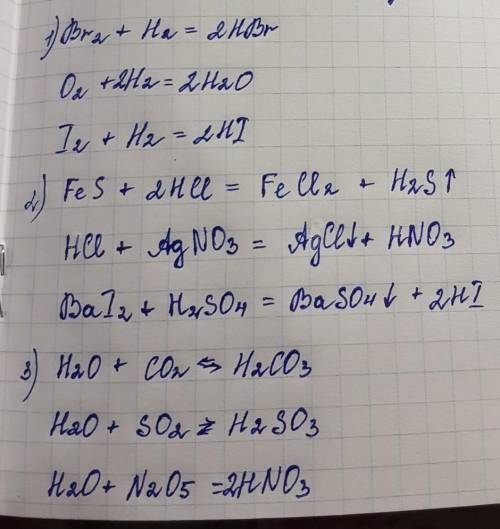 1) Br2 + H2 = 2HBr
O2 + 2H2 = 2H2O
I2 + H2 = 2HI
2) FeS + 2HCl = FeCl2 + H2S↑
HCl + AgNO3 = AgCl↓ + HNO3
BaI2 + H2SO4 = BaSO4↓ + 2HI
3) H2O + CO2 ⇆ H2CO3
H2O + SO2 ⇄ H2SO3
H2O + N2O5 = 2HNO3